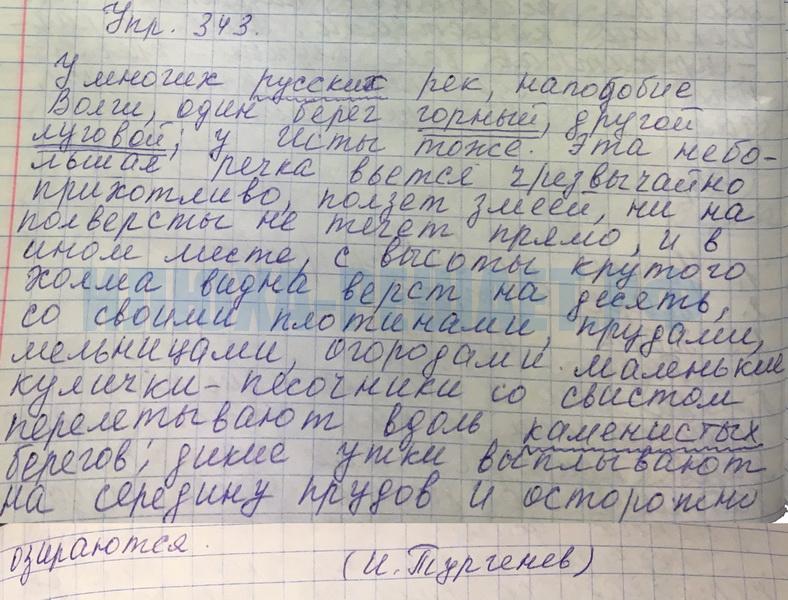 Упр. 343.
У многих русских рек, наподобие
Волги, один берег горный, другой
луговой; у Исты тоже. Эта небо-
льшая речка вьется чрезвычайно
прихотливо, ползет змеей, ни на
полверсты не течет прямо, и в
ином месте, с высоты крутого
холма видна верст на десять,
со своими плотинами, прудами,
мельницами, огородами. Маленькие
кулички-песочники со свистом
перелетывают вдоль каменистых
берегов; дикие утки выплывают
на середину прудов и осторожно
озираются.
(И. Тургенев)